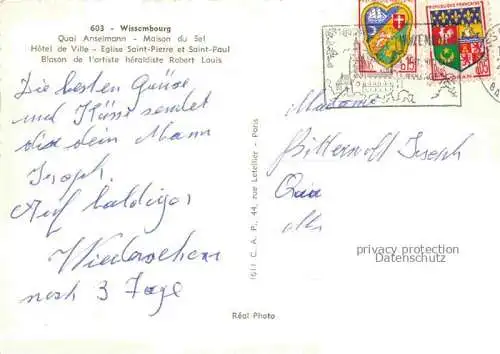 603 - Wissembourg
Quai Anselmann - Maison du Sel
Hôtel de Ville - Eglise Saint-Pierre et Saint-Paul
Blason de l'artiste héraldiste Robert Louis
Die besten Grüsse
und Küsse sendet
dir dein Mann
Joseph.
Auf baldiges
Wiedersehen
noch 3 Tage
Madame
Joseph
1611 C. A. P., 44, rue Letellier - Paris
Réal-Photo
privacy protection
Datenschutz